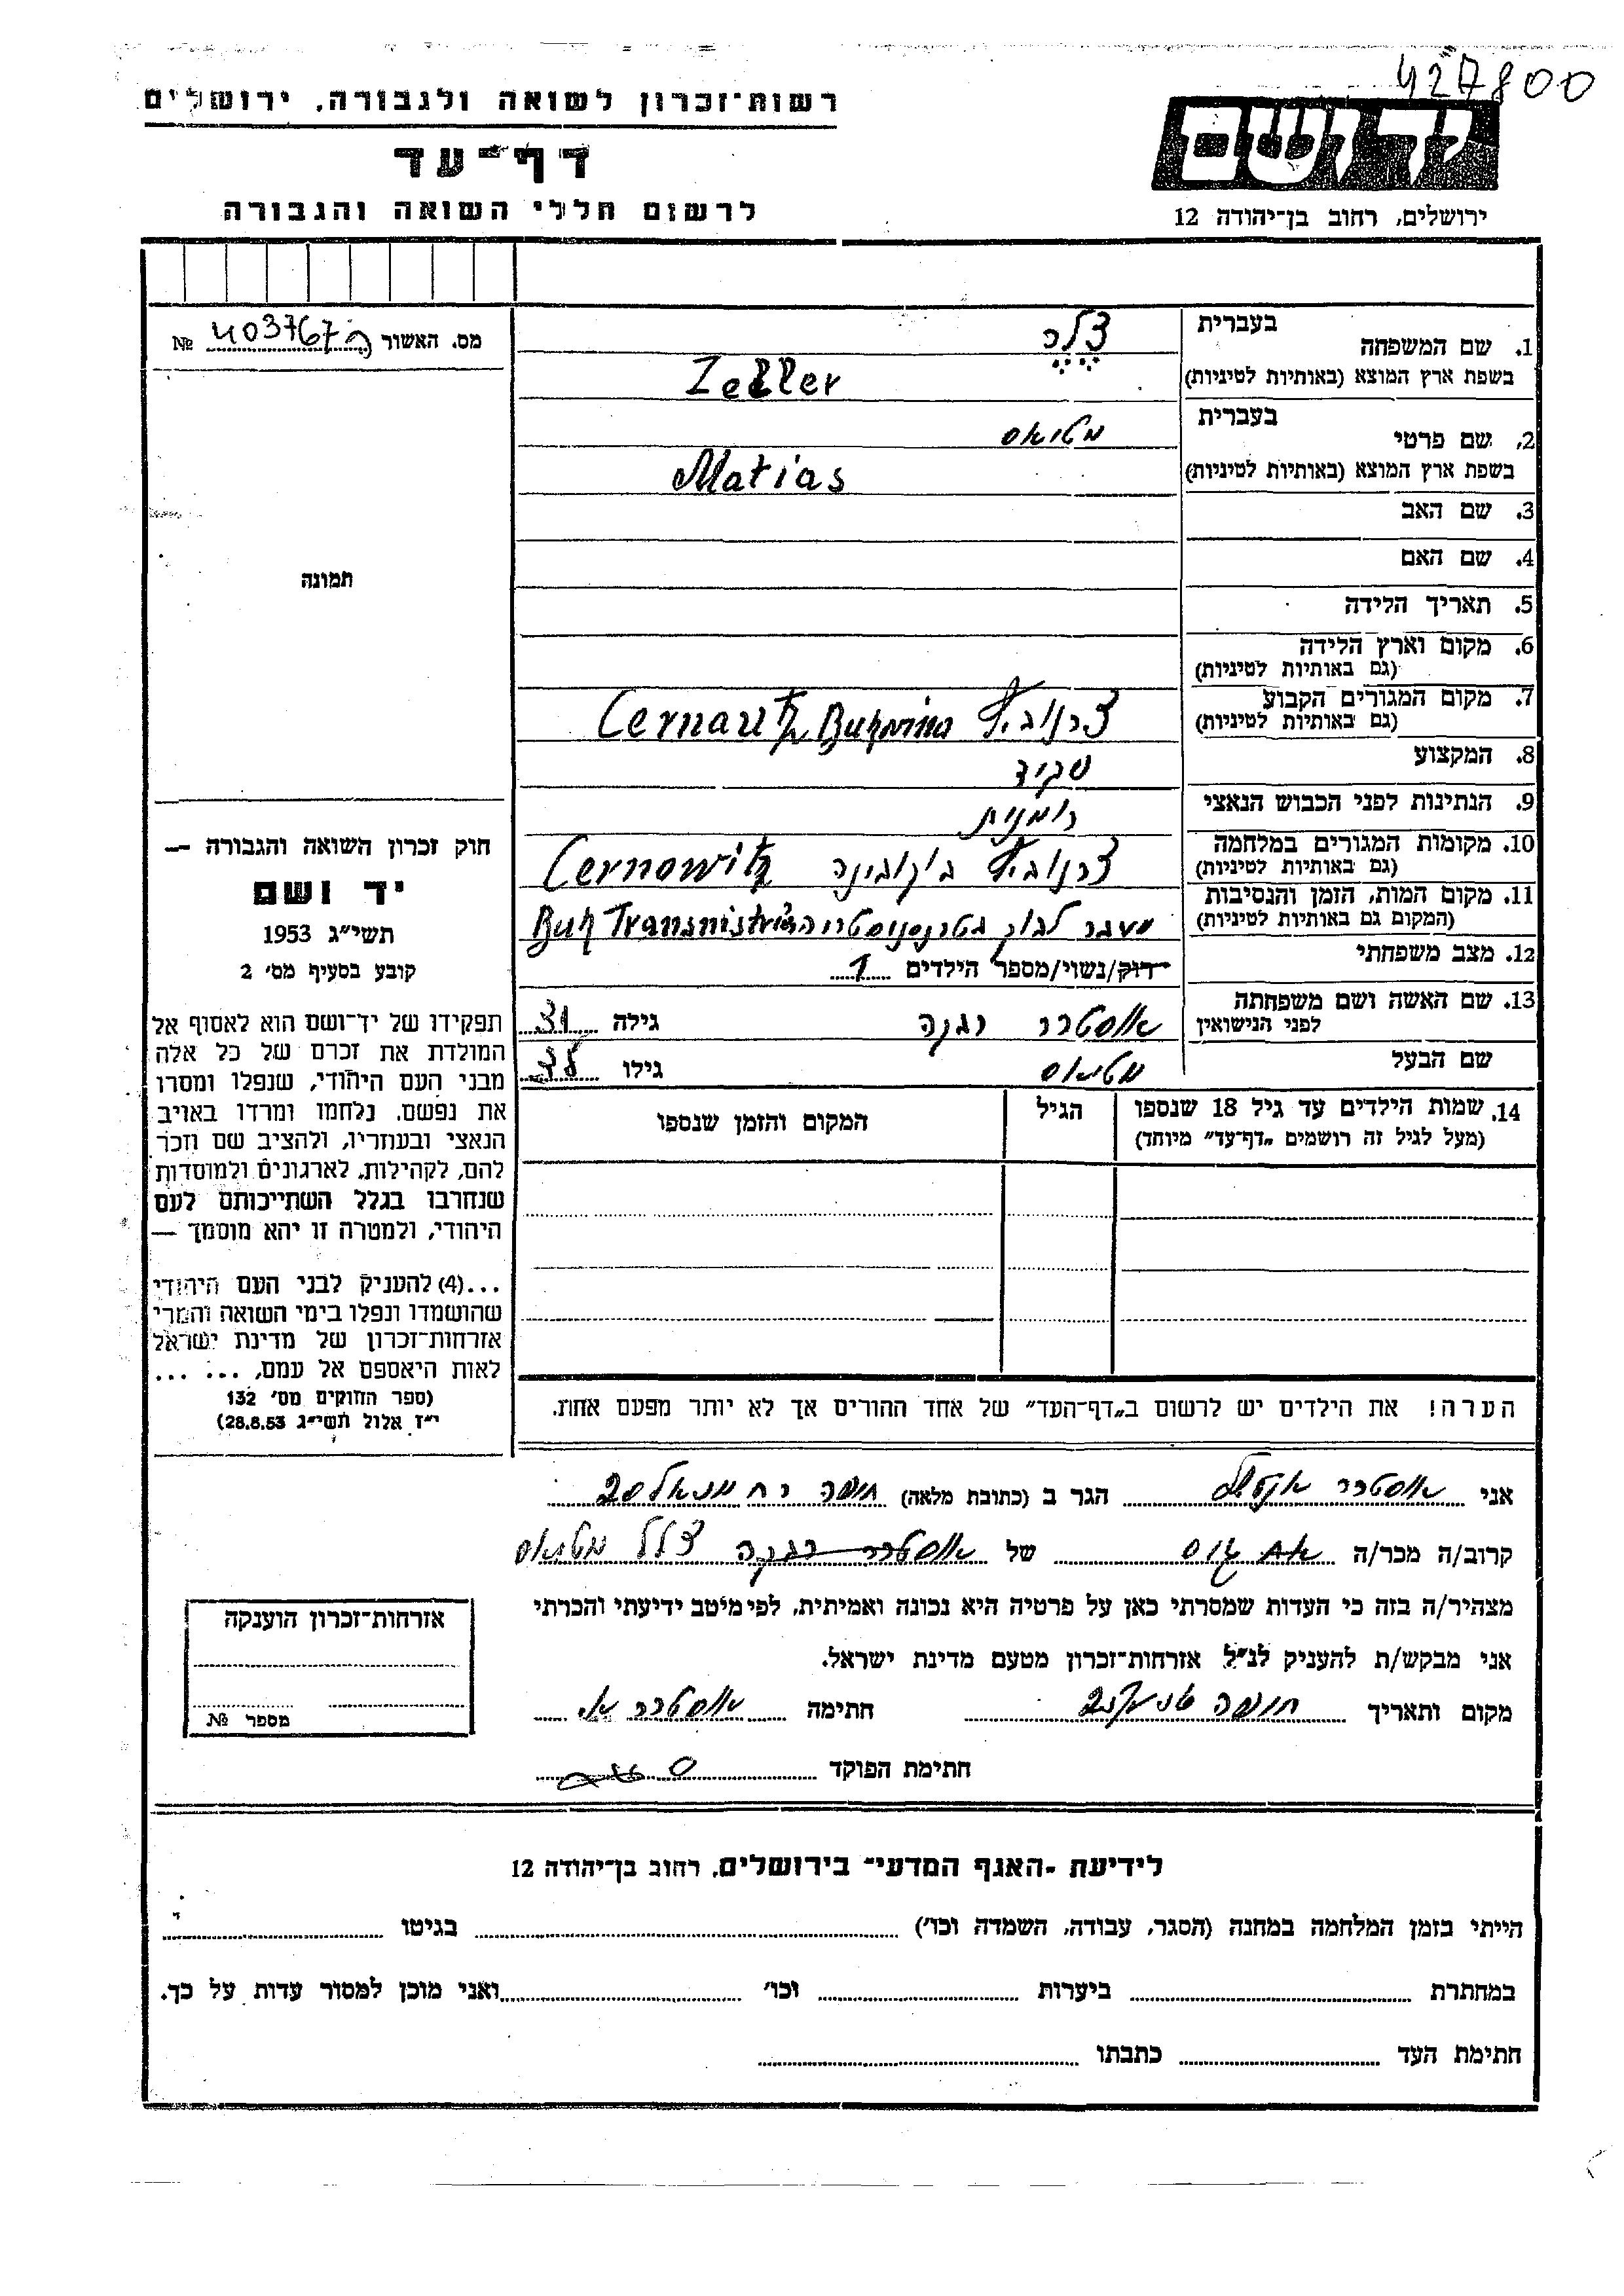 427800
רשות־זכרון לשואה ולגבורה, ירושלים
דף־עד
לרשום חללי השואה והגבורה
יד ושם
ירושלים, רחוב בן־יהודה 12
מס. האשור 403767 №
תמונה
1. שם המשפחה בעברית צלר
בשפת ארץ המוצא (באותיות לטיניות) Zeller
2. שם פרטי בעברית מטיאס
בשפת ארץ המוצא (באותיות לטיניות) Matias
3. שם האב
4. שם האם
5. תאריך הלידה
6. מקום וארץ הלידה
(גם באותיות לטיניות)
7. מקום המגורים הקבוע צרנוביץ Bukovina Cernautz
(גם באותיות לטיניות)
8. המקצוע פקיד
9. הנתינות לפני הכבוש הנאצי רומנית
10. מקומות המגורים במלחמה צרנוביץ בוקובינה Cernowitz
(גם באותיות לטיניות)
11. מקום המות, הזמן והנסיבות מעבר לבוג Buh Transnistria
(המקום גם באותיות לטיניות)
12. מצב משפחתי רוק/נשוי/מספר הילדים 1
13. שם האשה ושם משפחתה אוסטרר גילה 31
לפני הנישואין
שם הבעל מטיאס גילו
14. שמות הילדים עד גיל 18 שנספו הגיל המקום והזמן שנספו
(מעל לגיל זה רושמים „דף־עד” מיוחד)
הערה! את הילדים יש לרשום ב„דף־העד” של אחד ההורים אך לא יותר מפעם אחת.
חוק זכרון השואה והגבורה —
יד ושם
תשי״ג 1953
קובע בסעיף מס׳ 2
תפקידו של יד־ושם הוא לאסוף אל
המולדת את זכרם של כל אלה
מבני העם היהודי, שנפלו ומסרו
את נפשם, נלחמו ומרדו באויב
הנאצי ובעוזריו, ולהציב שם וזכר
להם, לקהילות, לארגונים ולמוסדות
שנחרבו בגלל השתייכותם לעם
היהודי, ולמטרה זו יהא מוסמך —
...(4) להעניק לבני העם היהודי
שהושמדו ונפלו בימי השואה והמרי
אזרחות־זכרון של מדינת ישראל
לאות היאספם אל עמם, ... ...
(ספר החוקים מס׳ 132
י״ז אלול תשי״ג 28.8.53)
אני אוסטרר הגר ב (כתובת מלאה) חיפה
קרוב/ה מכר/ה של צלר מטיאס
מצהיר/ה בזה כי העדות שמסרתי כאן על פרטיה היא נכונה ואמיתית, לפי מיטב ידיעתי והכרתי
אני מבקש/ת להעניק לנ״ל אזרחות־זכרון מטעם מדינת ישראל.
מקום ותאריך חיפה חתימה אוסטרר
חתימת הפוקד
אזרחות־זכרון הוענקה
מספר №
לידיעת „האגף המדעי” בירושלים, רחוב בן־יהודה 12
הייתי בזמן המלחמה במחנה (הסגר, עבודה, השמדה וכו׳) בגיטו
במחתרת ביערות וכו׳ ואני מוכן למסור עדות על כך.
חתימת העד כתבתו